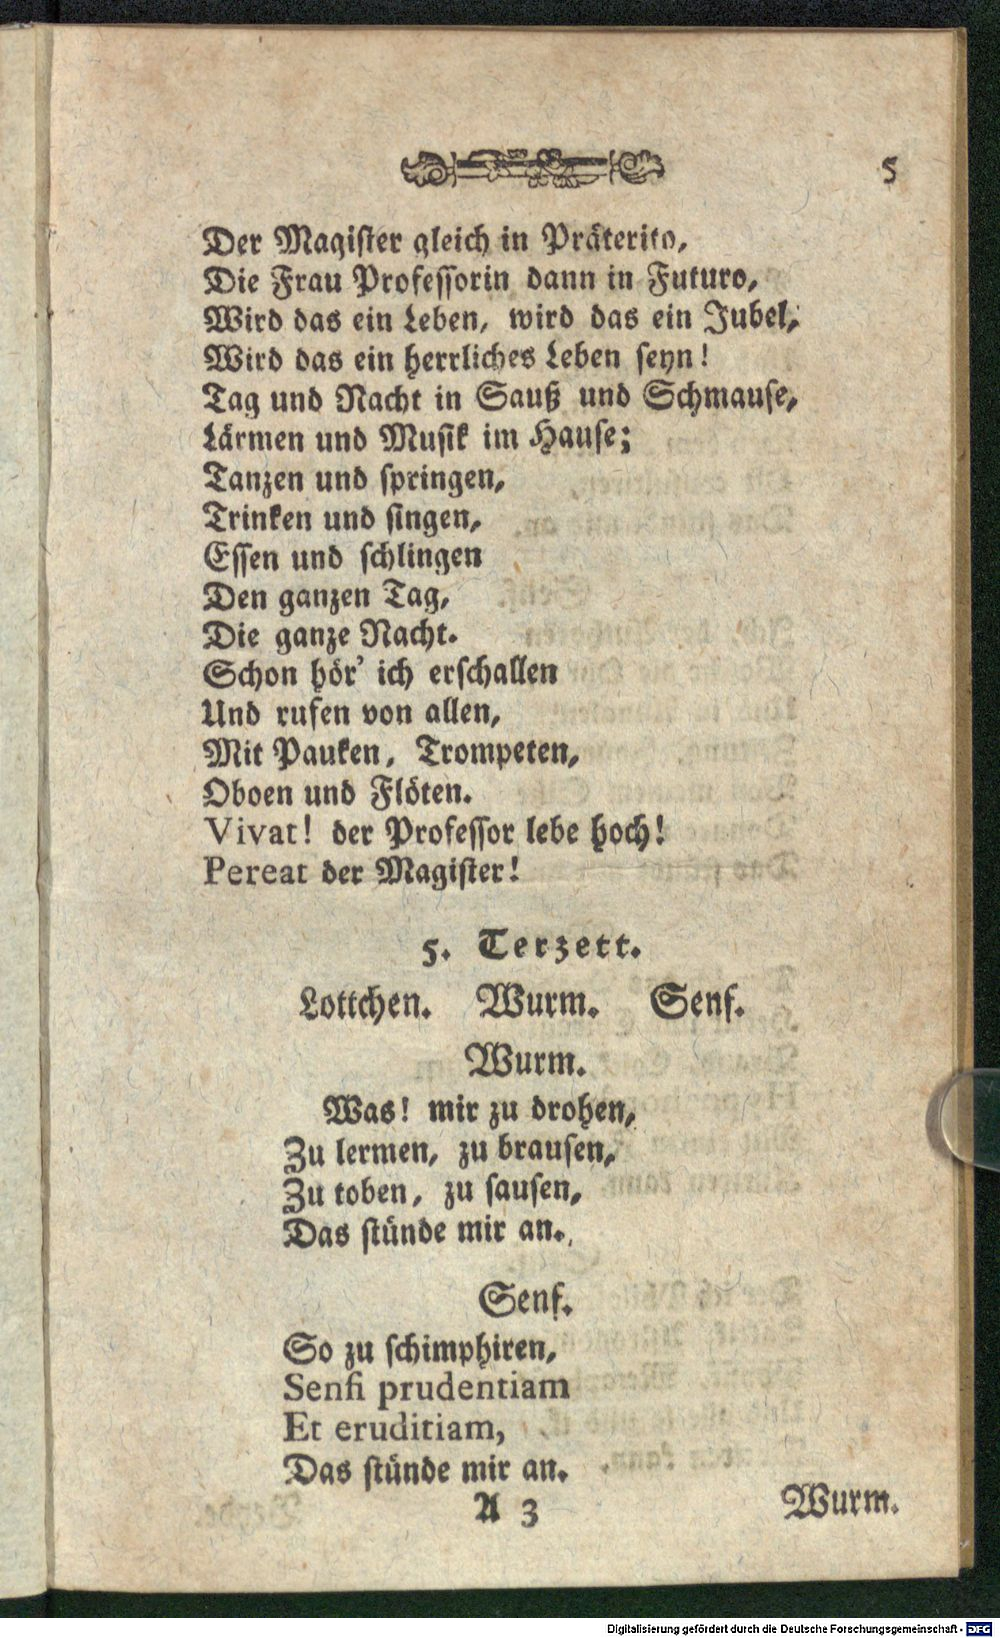 5
Der Magister gleich in Präterito,
Die Frau Professorin dann in Futuro,
Wird das ein Leben, wird das ein Jubel,
Wird das ein herrliches Leben seyn!
Tag und Nacht in Sauß und Schmause,
Lärmen und Musik im Hause;
Tanzen und springen,
Trinken und singen,
Essen und schlingen
Den ganzen Tag,
Die ganze Nacht.
Schon hör' ich erschallen
Und rufen von allen,
Mit Pauken, Trompeten,
Oboen und Flöten.
Vivat! der Professor lebe hoch!
Pereat der Magister!
5. Terzett.
Lottchen. Wurm. Senf.
Wurm.
Was! mir zu drohen,
Zu lermen, zu brausen,
Zu toben, zu sausen,
Das stünde mir an.
Senf.
So zu schimphiren,
Senfi prudentiam
Et eruditiam,
Das stünde mir an.
A 3
Wurm.
Digitalisierung gefördert durch die Deutsche Forschungsgemeinschaft - DFG